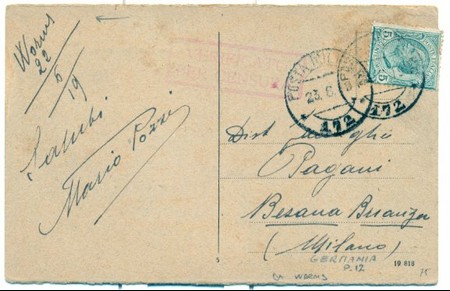 Worms
22
6
19
Saluti
Mario Pozzi
POSTA MILITARE
23.6.
172
172
5 5
Dist Famiglia
Pagani
Besana Brianza
(Milano)
GERMANIA
P.12
da WORMS
5
19 813
15